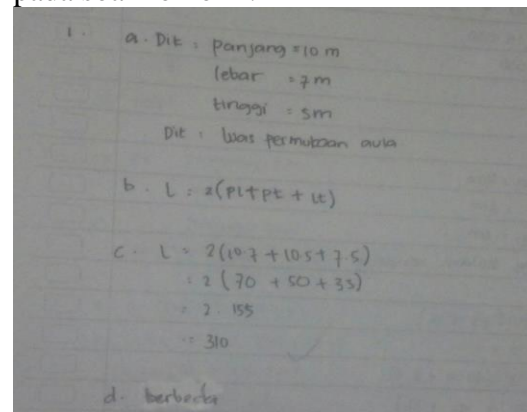 1. a. Dit : panjang = 10 m
lebar = 7 m
tinggi = 5m
Dit : luas permukaan aula
b. L = 2(pl+pt + lt)
c. L = 2(10.7 + 10.5 + 7.5)
= 2 (70 + 50 + 35)
= 2. 155
= 310
d. berbeda